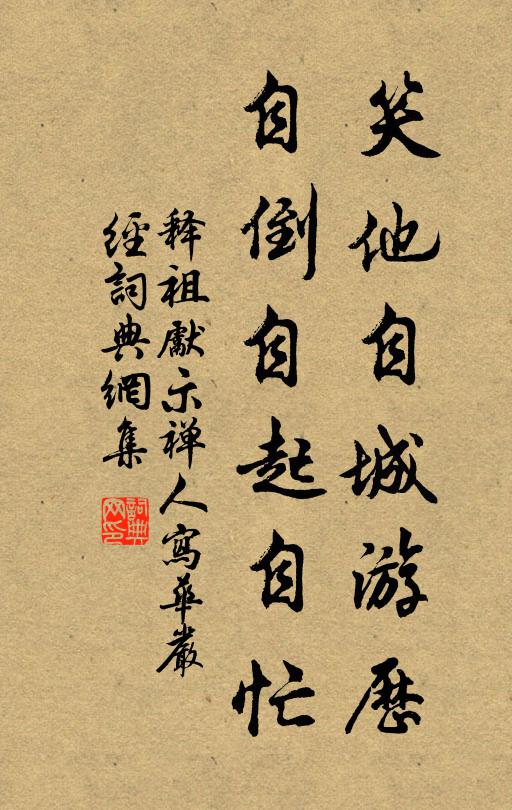 笑他自城游歷
自倒自起自忙
释祖獻示禅人寫華嚴
經詞典網集
詞典网印